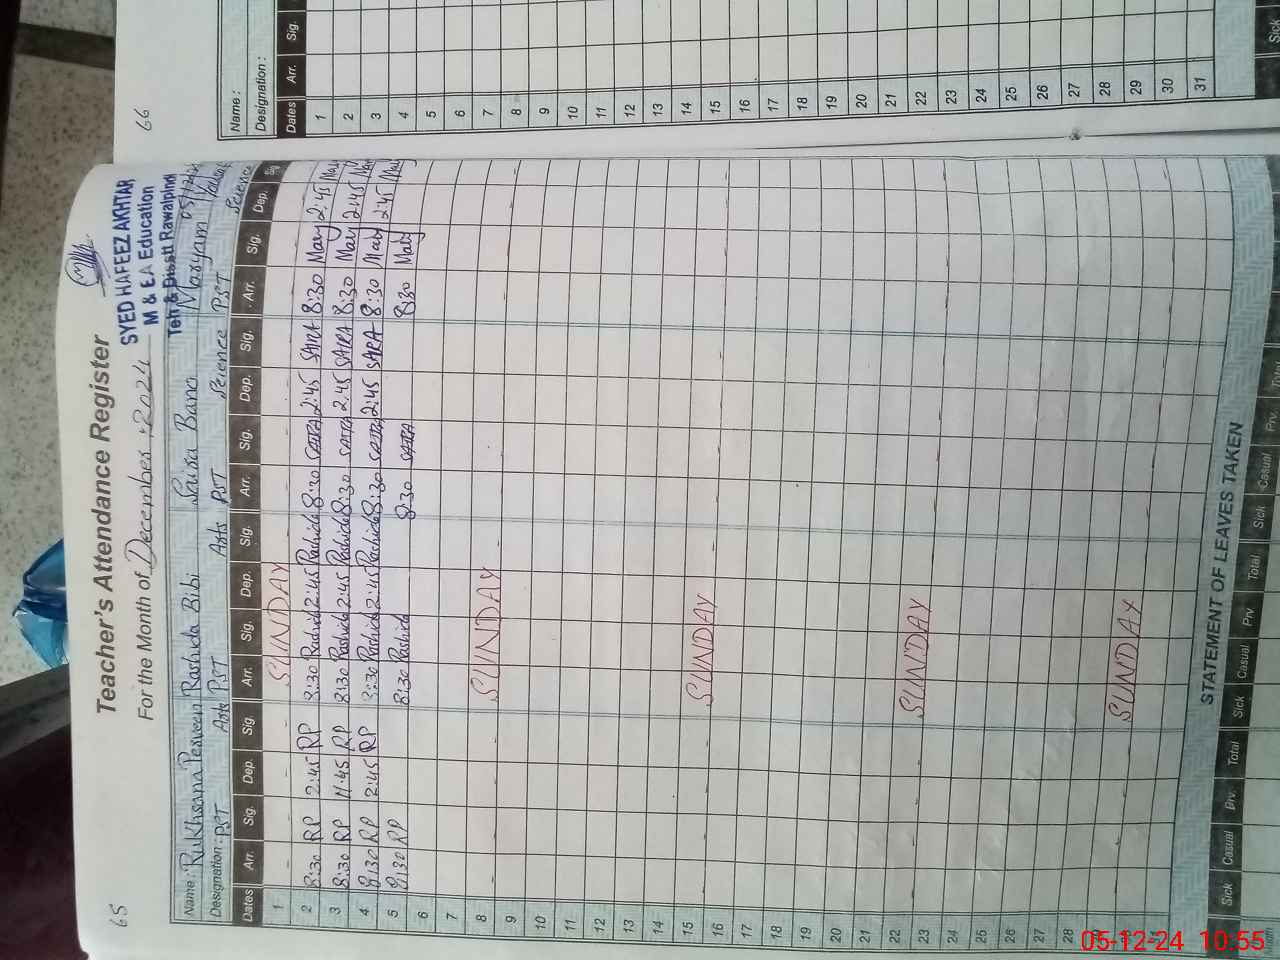 65
Teacher's Attendance Register
For the Month of December, 2024
SYED HAFEEZ AKHTAR
M & EA Education
Teh & Disstt Rawalpindi
05/12/24
Name: Rukhsana Perveen Rashida Bibi Saira Bano Maryam Yousaf
Designation: PST Arts PST Arts PST Science PST Science
Dates Arr. Sig. Dep. Sig. Arr. Sig. Dep. Sig. Arr. Sig. Dep. Sig. Arr. Sig. Dep. Sig
1 SUNDAY
2 8:30 RP 2:45 RP 8:30 Rashida 2:45 Rashida 8:30 SAIRA 2:45 SAIRA 8:30 Mary 2:45 Mary
3 8:30 RP 11:45 RP 8:30 Rashida 2:45 Rashida 8:30 SAIRA 2:45 SAIRA 8:30 Mary 2:45
4 8:30 RP 2:45 RP 8:30 Rashida 2:45 Rashida 8:30 SAIRA 2:45 SAIRA 8:30 Mary 2:45
5 8:30 RP 8:30 Rashida 8:30 SAIRA 8:30 Mary
6
7
8 SUNDAY
9
10
11
12
13
14
15 SUNDAY
16
17
18
19
20
21
22 SUNDAY
23
24
25
26
27
28
SUNDAY
STATEMENT OF LEAVES TAKEN
Sick Casual Prv. Total Sick Casual Prv Total Sick Casual Prv. Total
66
Name:
Designation:
Dates Arr. Sig.
1
2
3
4
5
6
7
8
9
10
11
12
13
14
15
16
17
18
19
20
21
22
23
24
25
26
27
28
29
30
31
Sick
05-12-24 10:55